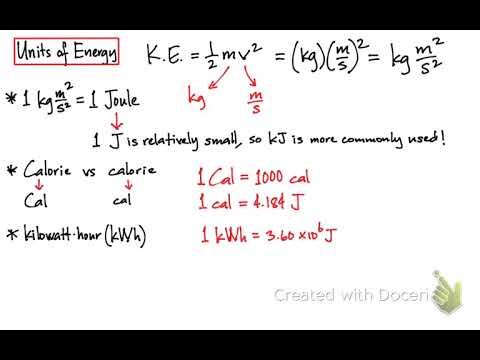 Units of Energy
K.E. = 1/2 mv² = (kg)(m/s)² = kg m²/s²
kg m/s
* 1 kg m²/s² = 1 Joule
1 J is relatively small, so kJ is more commonly used!
* Calorie vs calorie
Cal cal
1 Cal = 1000 cal
1 cal = 4.184 J
* kilowatt·hour (kWh)
1 kWh = 3.60 × 10⁶ J
Created with Doceri